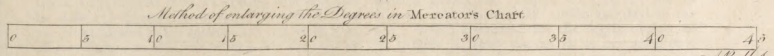 Method of enlarging the Degrees in Mercator's Chart
0 5 10 15 20 25 30 35 40 45